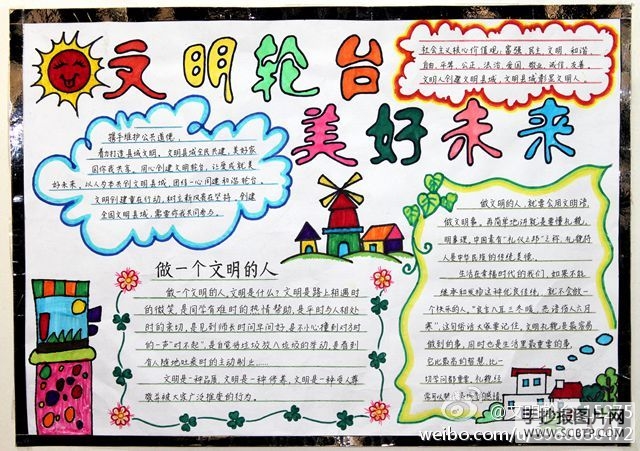 文明轮台
美好未来
社会主义核心价值观，富强、民主、文明、和谐，
自由、平等、公正、法治、爱国、敬业、诚信、友善，
文明人创建文明县城，文明县城彰显文明人。
携手维护公共道德，
着力打造县城文明。文明县城全民共建，美好家
园你我共享。用心创建文明轮台，让爱成就美
好未来，以人为本共创文明县城，团结一心同建和谐轮台。
文明创建重在行动，树立新风贵在坚持。创建
全国文明县城，需要你我共同努力。
做一个文明的人
做一个文明的人，文明是什么？文明是路上相遇时
的微笑，是同学有难时的热情帮助，是平时与人相处
时的亲切，是见到师长时问早问好，是不小心撞到对方时
的一声"对不起"，是自觉将垃圾放入垃圾的举动，是看到
有人随地吐痰时的主动制止……
文明是一种品质，文明是一种修养，文明是一种受人尊
敬并被大家广泛推崇的行为。
做文明的人，就要会用文明语，
做文明事。再简单地讲就是要懂礼貌，
明事理。中国素有"礼仪之邦"之称，礼貌待
人是中华民族的传统美德。
生活在幸福时代的我们，如果不能
继承和发扬这种优良传统，就不会做一
个快乐的人。"良言入耳三冬暖，恶语伤人六月
寒"，这句俗话大家要记住，文明礼貌是最容易
做到的事，同时也是生活里最重要的事，
它比最高的智慧，比一
切学问都重要，礼貌经
手抄报图片网
WWW.SCBTP.COM